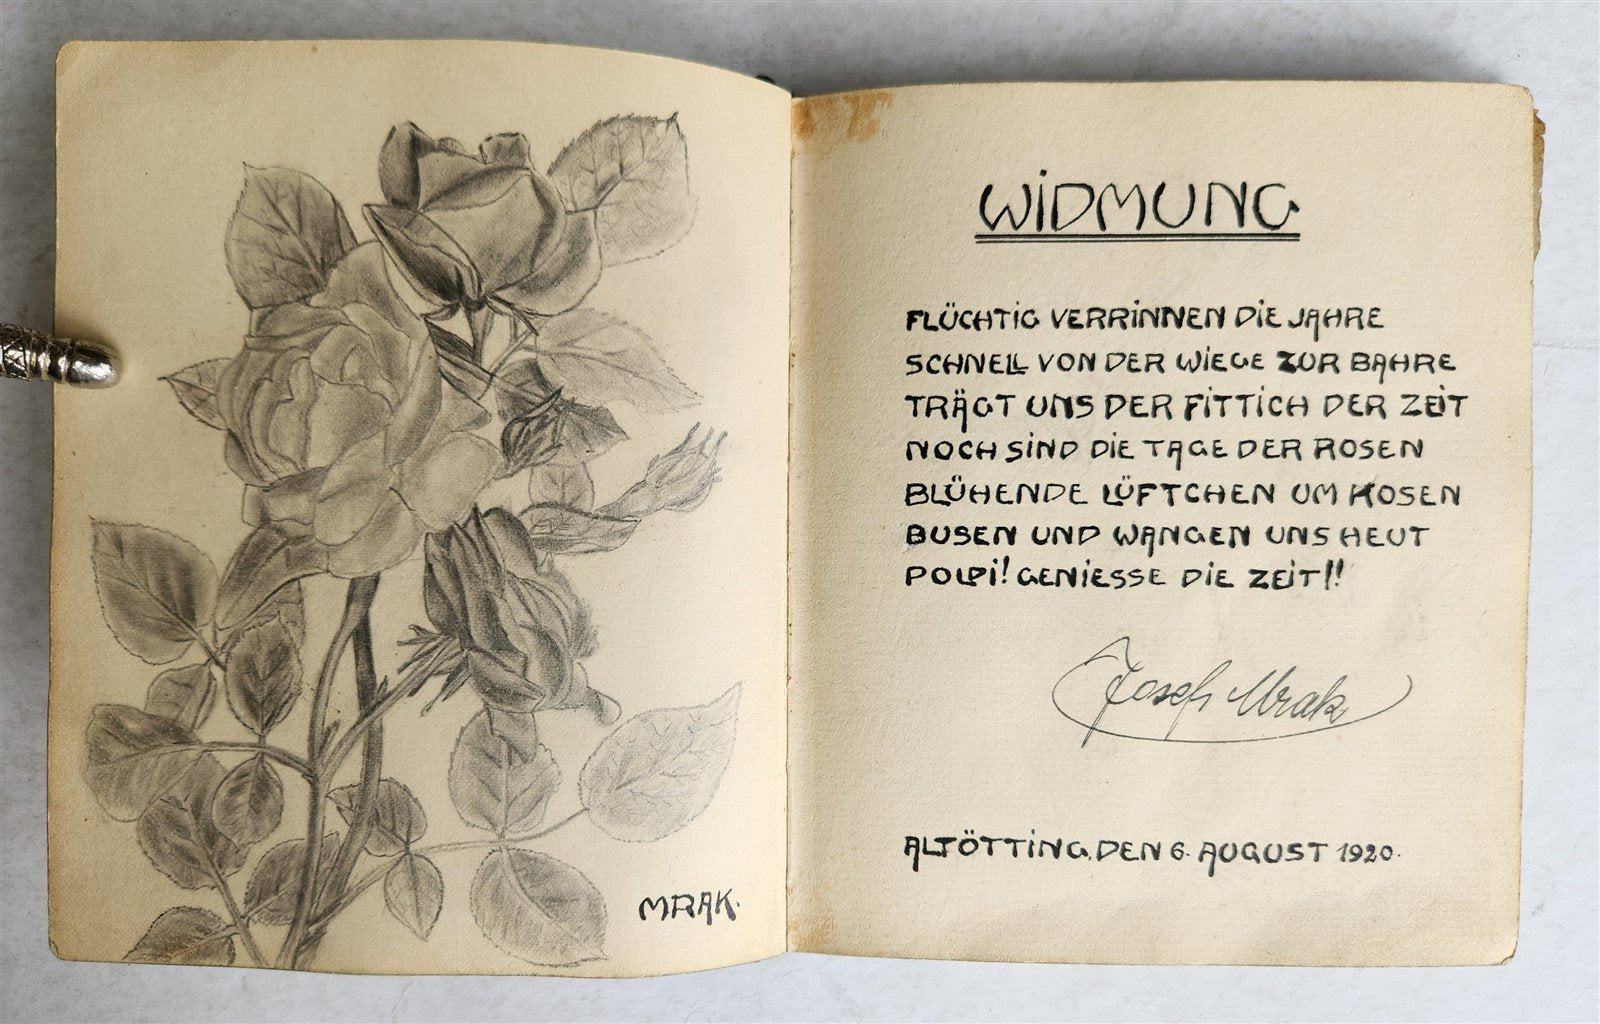 MRAK.
WIDMUNG
FLÜCHTIG VERRINNEN DIE JAHRE
SCHNELL VON DER WIEGE ZUR BAHRE
TRÄGT UNS DER FITTICH DER ZEIT
NOCH SIND DIE TAGE DER ROSEN
BLÜHENDE LÜFTCHEN UM KOSEN
BUSEN UND WANGEN UNS HEUT
POLDI! GENIESSE DIE ZEIT!!
Josef Mrak
ALTÖTTING, DEN 6. AUGUST 1920.